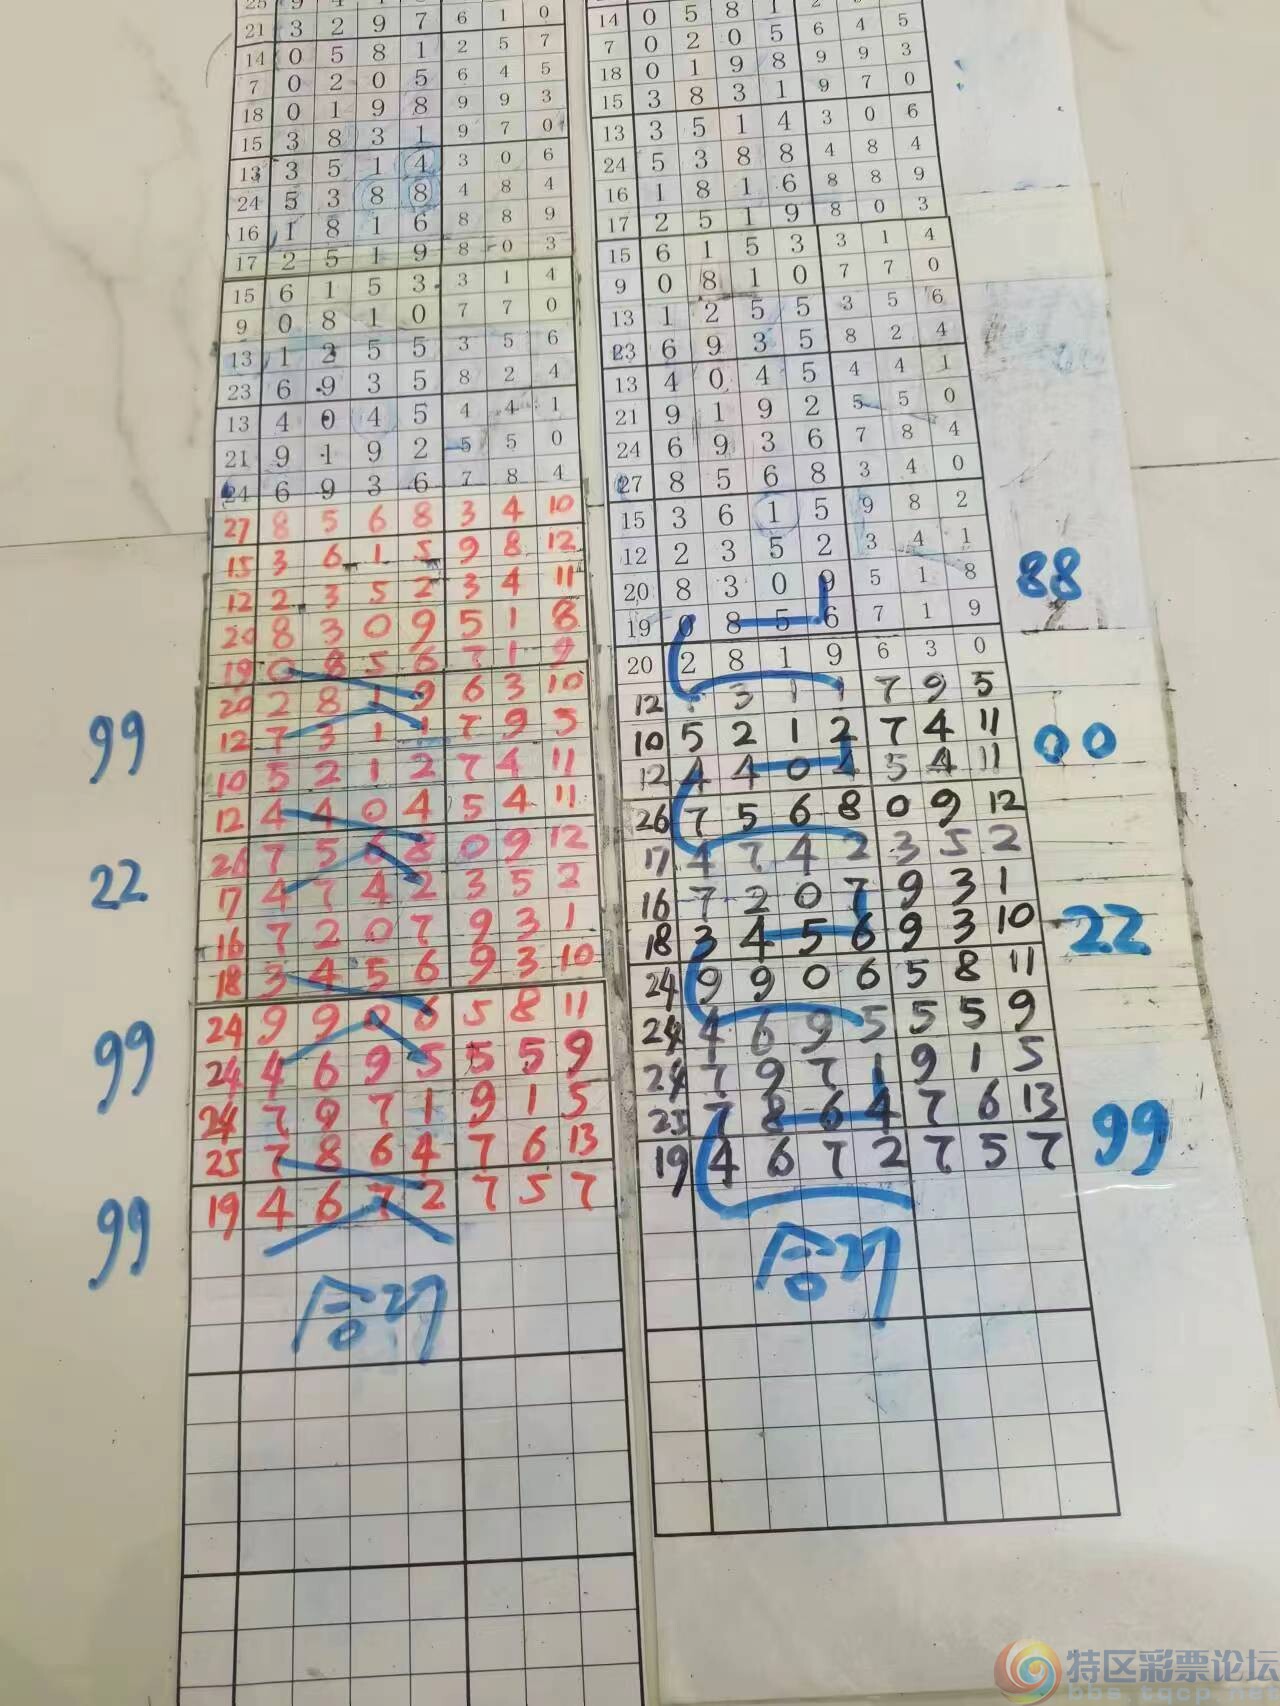 21 3 2 9 7 6 1 0
14 0 5 8 1 2 5 7
7 0 2 0 5 6 4 5
18 0 1 9 8 9 9 3
15 3 8 3 1 9 7 0
13 3 5 1 4 3 0 6
24 5 3 8 8 4 8 4
16 1 8 1 6 8 8 9
17 2 5 1 9 8 0 3
15 6 1 5 3 3 1 4
9 0 8 1 0 7 7 0
13 1 2 5 5 3 5 6
23 6 9 3 5 8 2 4
13 4 0 4 5 4 4 1
21 9 1 9 2 5 5 0
24 6 9 3 6 7 8 4
27 8 5 6 8 3 4 10
15 3 6 1 5 9 8 12
12 2 3 5 2 3 4 11
20 8 3 0 9 5 1 8
19 0 8 5 6 7 1 9
20 2 8 1 9 6 3 10
12 7 3 1 1 7 9 5
99
10 5 2 1 2 7 4 11
12 4 4 0 4 5 4 11
26 7 5 6 8 0 9 12
22
17 4 7 4 2 3 5 2
16 7 2 0 7 9 3 1
18 3 4 5 6 9 3 10
24 9 9 0 6 5 8 11
99
24 4 6 9 5 5 5 9
24 7 9 7 1 9 1 5
25 7 8 6 4 7 6 13
19 4 6 7 2 7 5 7
99
合对
14 0 5 8 1 2
7 0 2 0 5 6 4 5
18 0 1 9 8 9 9 3
15 3 8 3 1 9 7 0
13 3 5 1 4 3 0 6
24 5 3 8 8 4 8 4
16 1 8 1 6 8 8 9
17 2 5 1 9 8 0 3
15 6 1 5 3 3 1 4
9 0 8 1 0 7 7 0
13 1 2 5 5 3 5 6
23 6 9 3 5 8 2 4
13 4 0 4 5 4 4 1
21 9 1 9 2 5 5 0
24 6 9 3 6 7 8 4
27 8 5 6 8 3 4 0
15 3 6 1 5 9 8 2
12 2 3 5 2 3 4 1
20 8 3 0 9 5 1 8
88
19 0 8 5 6 7 1 9
20 2 8 1 9 6 3 0
12 3 1 1 7 9 5
10 5 2 1 2 7 4 11
00
12 4 4 0 4 5 4 11
26 7 5 6 8 0 9 12
17 4 7 4 2 3 5 2
16 7 2 0 7 9 3 1
18 3 4 5 6 9 3 10
22
24 9 9 0 6 5 8 11
24 4 6 9 5 5 5 9
24 7 9 7 1 9 1 5
25 7 8 6 4 7 6 13
19 4 6 7 2 7 5 7
99
合对
特区彩票论坛
bbs.tqcp.net